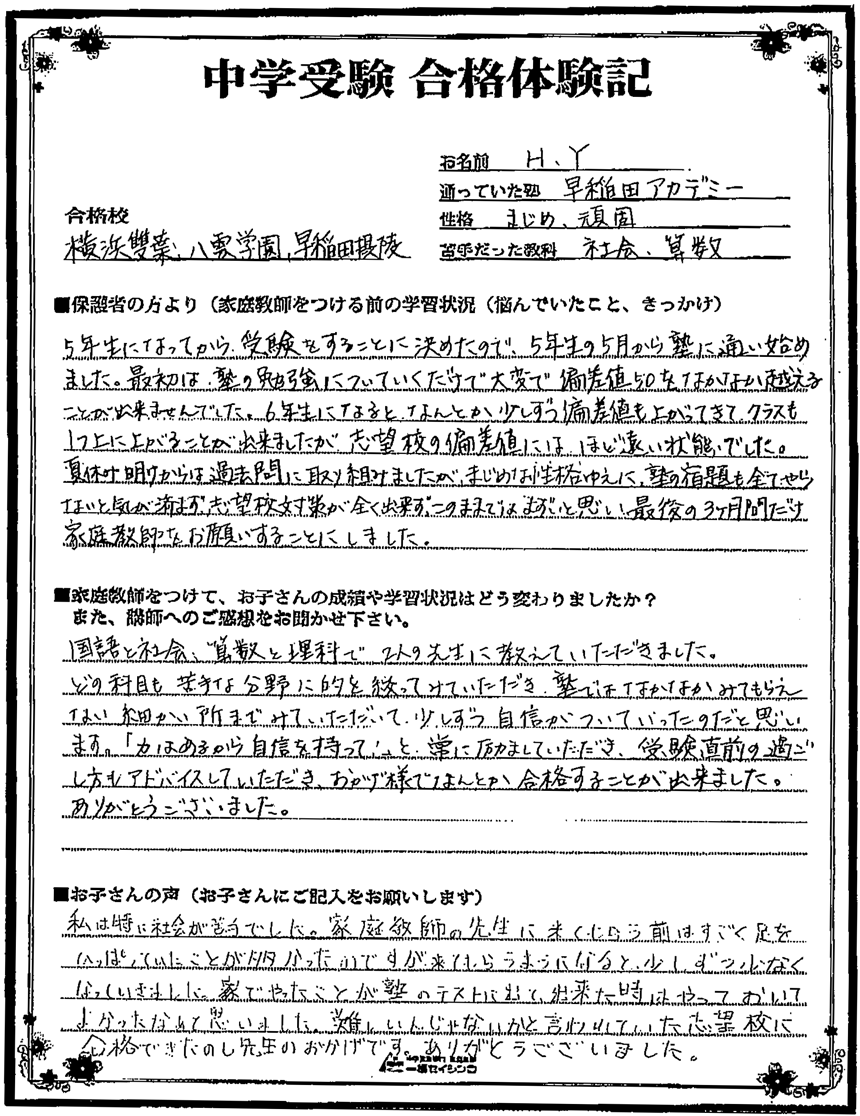 中学受験 合格体験記
お名前 H.Y
通っていた塾 早稲田アカデミー
合格校
性格 まじめ、頑固
横浜雙葉、八雲学園、早稲田摂陵
苦手だった教科 社会、算数
■保護者の方より（家庭教師をつける前の学習状況（悩んでいたこと、きっかけ）
5年生になってから、受験をすることに決めたので、5年生の5月から塾に通い始め
ました。最初は、塾の勉強についていくだけで大変で偏差値50を、なかなか越える
ことが出来ませんでした。6年生になると、なんとか少しずつ偏差値も上がってきて、クラスも
1つ上に上がることが出来ましたが、志望校の偏差値には、ほど遠い状態でした。
夏休み明けからは過去問に取り組みましたが、まじめな性格ゆえに、塾の宿題も全てやら
ないと気が済まず、志望校対策が全く出来ず、このままではまずいと思い、最後の3ヶ月間だけ
家庭教師をお願いすることにしました。
■家庭教師をつけて、お子さんの成績や学習状況はどう変わりましたか？
また、講師へのご感想をお聞かせ下さい。
国語と社会、算数と理科で2人の先生に教えていただきました。
どの科目も苦手な分野に的を絞ってみていただき、塾ではなかなかみてもらえ
ない細かい所までみていただいて、少しずつ自信がついていったのだと思い
ます。「力はあるから自信を持って!」と、常に励ましていただき、受験直前の過ご
し方もアドバイスしていただき、おかげ様でなんとか合格することが出来ました。
ありがとうございました。
■お子さんの声（お子さんにご記入をお願いします）
私は特に社会が苦手でした。家庭教師の先生に来てもらう前はすごく足を
ひっぱっていたことが多かったのですが来てもらうようになると、少しずつ少なく
なっていきました。家でやったことが塾のテストに出て、出来た時はやっておいて
よかったなあと思いました。難しいんじゃないかと言われていた志望校に
合格できたのも先生のおかげです。ありがとうございました。
一橋セイシン会